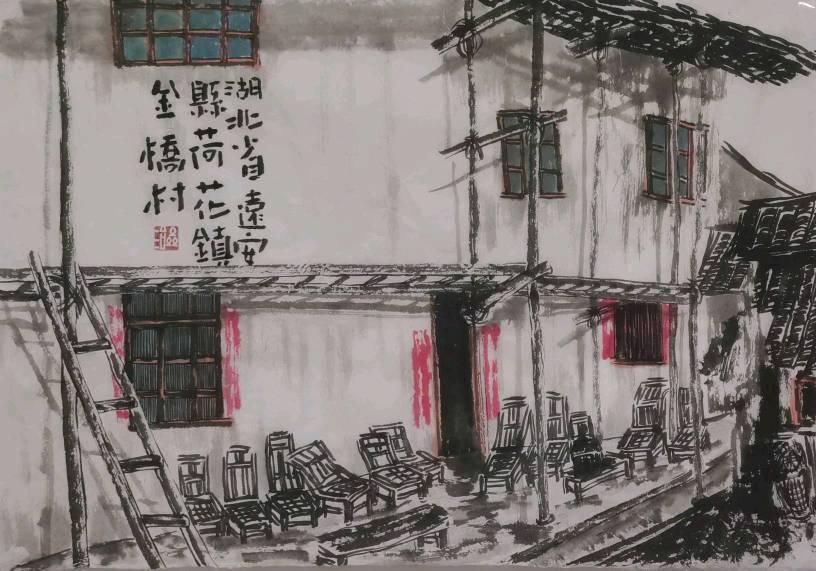 湖北省遠安
縣荷花鎮
金橋村